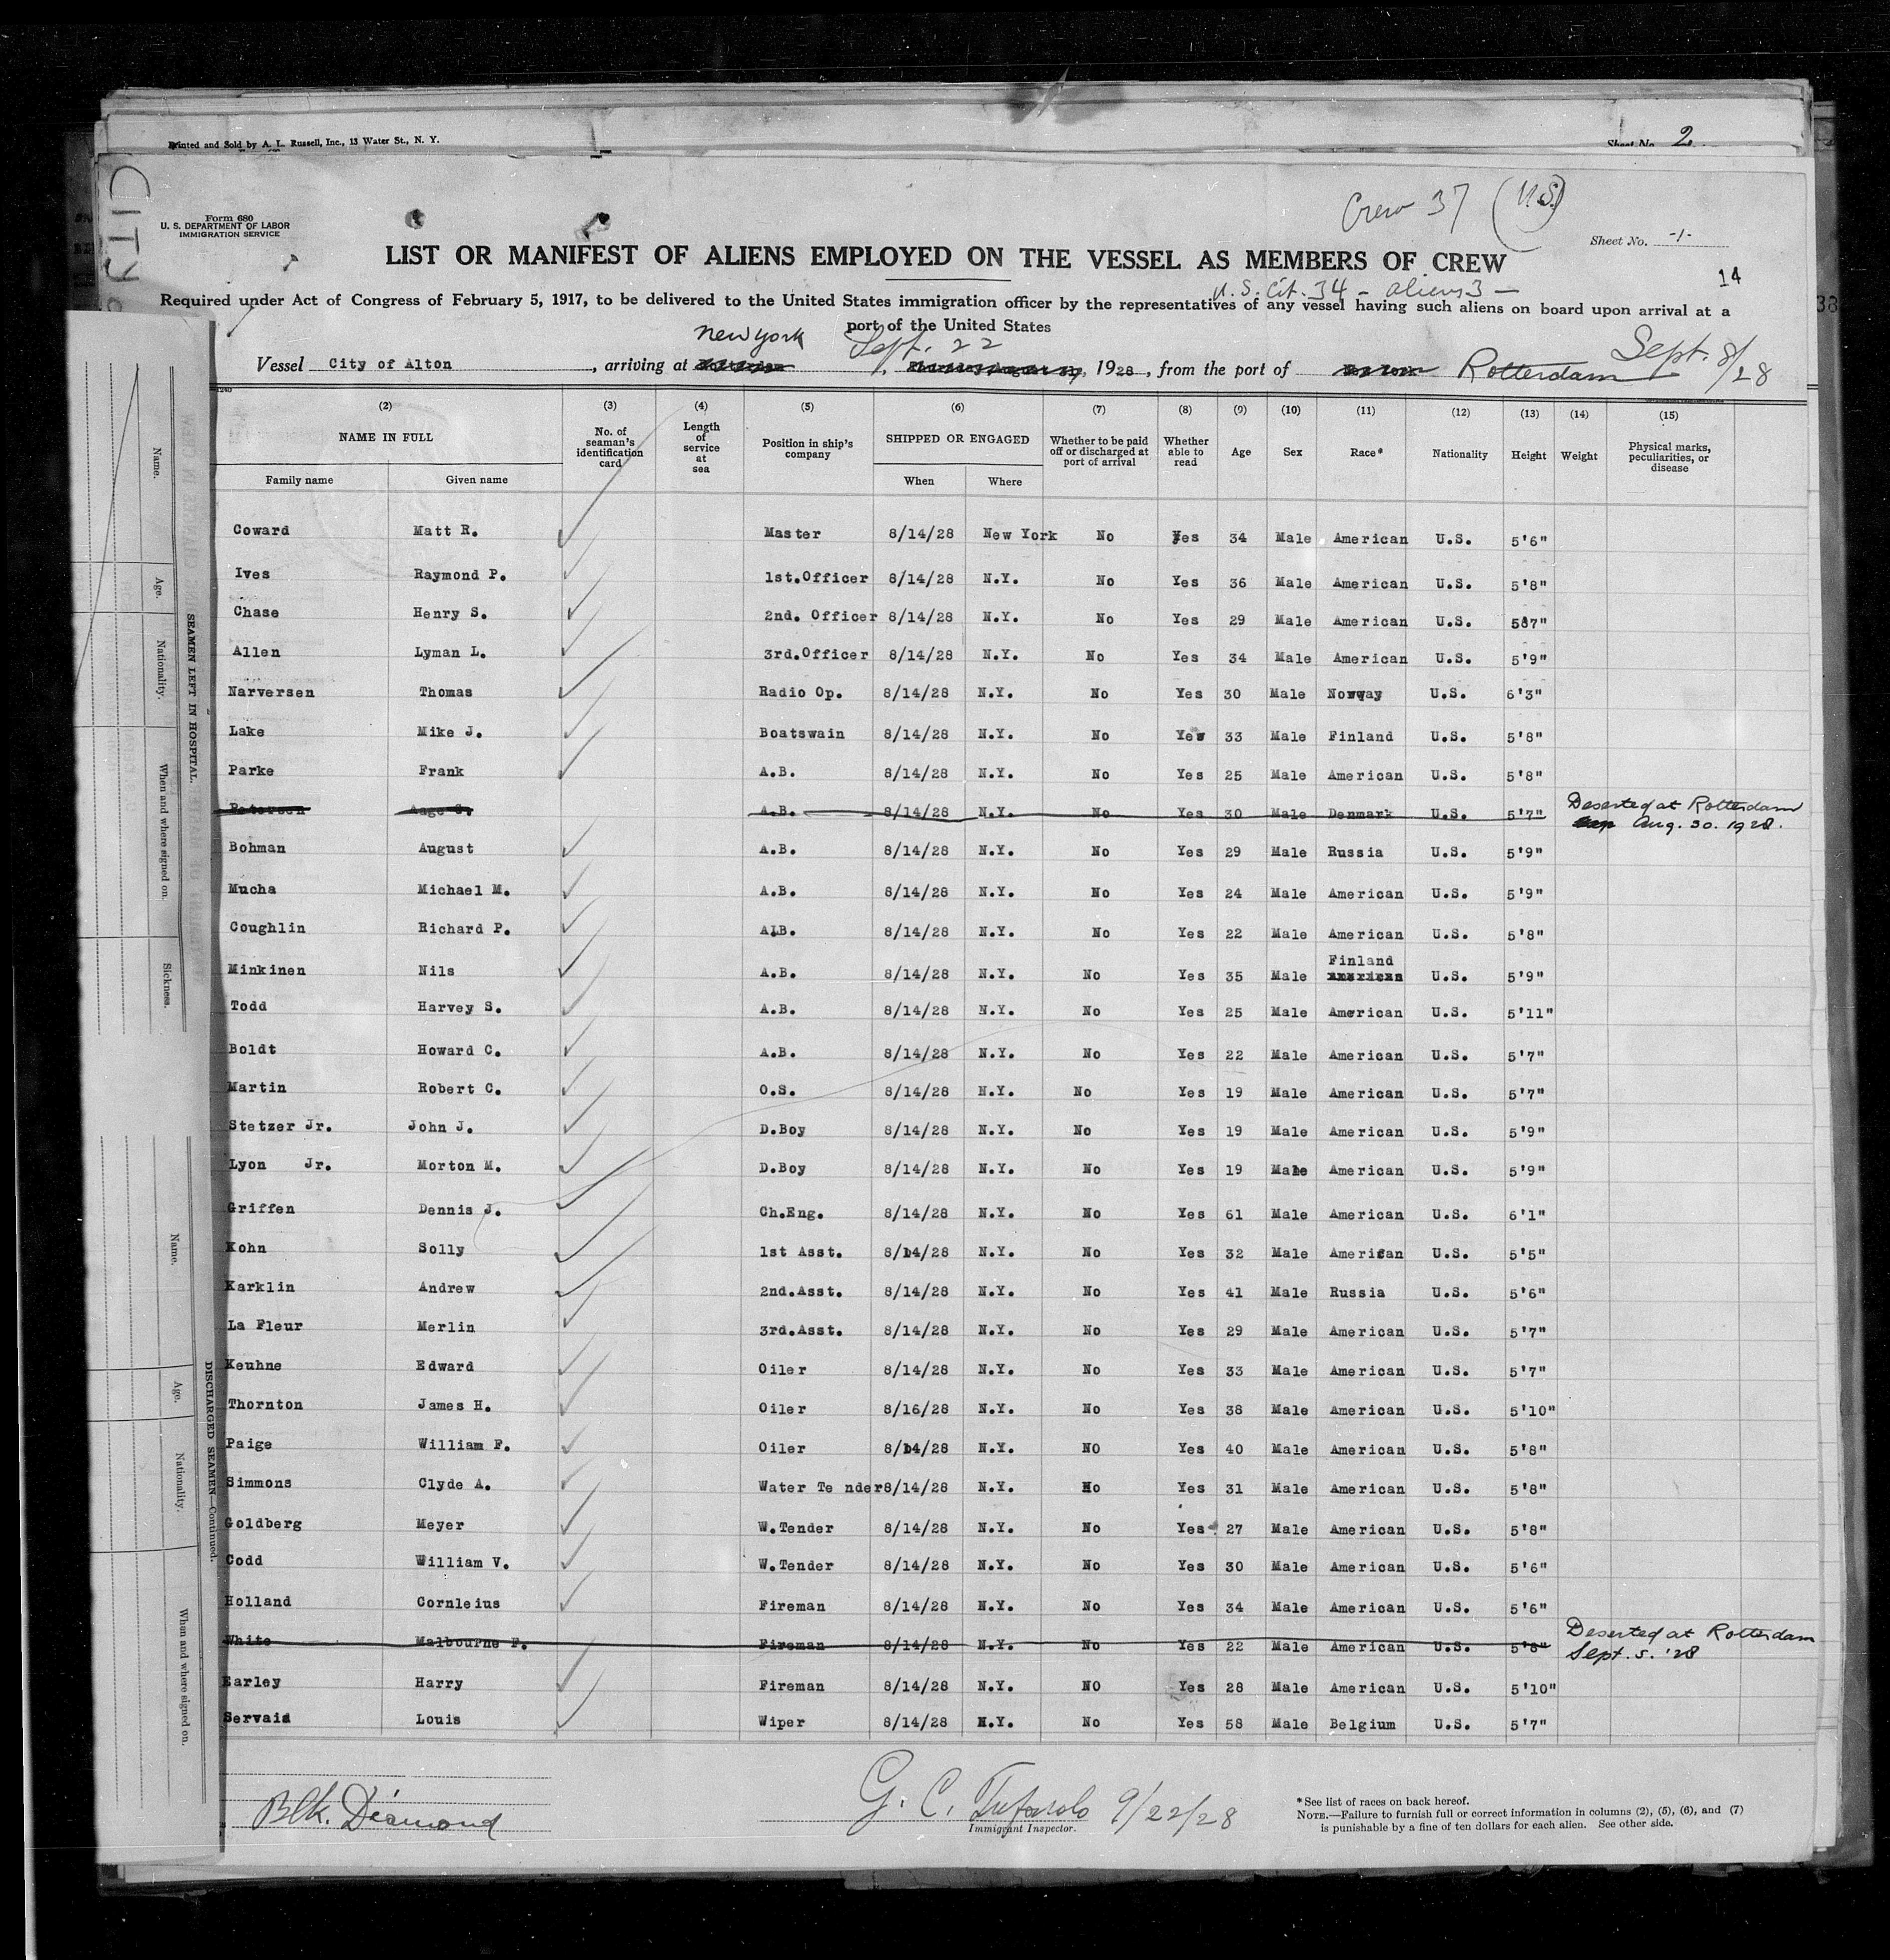 Printed and Sold by A. L. Russell, Inc., 13 Water St., N. Y.
Sheet No. 2
Crew 37 (U.S.)
Form 680
U. S. DEPARTMENT OF LABOR
IMMIGRATION SERVICE
Sheet No. -1-
LIST OR MANIFEST OF ALIENS EMPLOYED ON THE VESSEL AS MEMBERS OF CREW
14
U.S. Cit. 34 - aliens 3 -
Required under Act of Congress of February 5, 1917, to be delivered to the United States immigration officer by the representatives of any vessel having such aliens on board upon arrival at a
port of the United States
New York Sept. 22 Sept. 8/28
Vessel City of Alton, arriving at , 1928, from the port of Rotterdam
(2) (3) (4) (5) (6) (7) (8) (9) (10) (11) (12) (13) (14) (15)
NAME IN FULL No. of seaman's identification card Length of service at sea Position in ship's company SHIPPED OR ENGAGED Whether to be paid off or discharged at port of arrival Whether able to read Age Sex Race* Nationality Height Weight Physical marks, peculiarities, or disease
Family name Given name When Where
Coward Matt R. Master 8/14/28 New York No Yes 34 Male American U.S. 5'6"
Ives Raymond P. 1st.Officer 8/14/28 N.Y. No Yes 36 Male American U.S. 5'8"
Chase Henry S. 2nd. Officer 8/14/28 N.Y. No Yes 29 Male American U.S. 587"
Allen Lyman L. 3rd.Officer 8/14/28 N.Y. No Yes 34 Male American U.S. 5'9"
Narversen Thomas Radio Op. 8/14/28 N.Y. No Yes 30 Male Norway U.S. 6'3"
Lake Mike J. Boatswain 8/14/28 N.Y. No Yes 33 Male Finland U.S. 5'8"
Parke Frank A.B. 8/14/28 N.Y. No Yes 25 Male American U.S. 5'8"
Petersen Aage C. A.B. 8/14/28 N.Y. No Yes 30 Male Denmark U.S. 5'7" Deserted at Rotterdam
Aug. 30. 1928.
Bohman August A.B. 8/14/28 N.Y. No Yes 29 Male Russia U.S. 5'9"
Mucha Michael M. A.B. 8/14/28 N.Y. No Yes 24 Male American U.S. 5'9"
Coughlin Richard P. A.B. 8/14/28 N.Y. No Yes 22 Male American U.S. 5'8"
Minkinen Nils A.B. 8/14/28 N.Y. No Yes 35 Male Finland American U.S. 5'9"
Todd Harvey S. A.B. 8/14/28 N.Y. No Yes 25 Male American U.S. 5'11"
Boldt Howard C. A.B. 8/14/28 N.Y. No Yes 22 Male American U.S. 5'7"
Martin Robert C. O.S. 8/14/28 N.Y. No Yes 19 Male American U.S. 5'7"
Stetzer Jr. John J. D.Boy 8/14/28 N.Y. No Yes 19 Male American U.S. 5'9"
Lyon Jr. Morton M. D.Boy 8/14/28 N.Y. No Yes 19 Male American U.S. 5'9"
Griffen Dennis J. Ch.Eng. 8/14/28 N.Y. No Yes 61 Male American U.S. 6'1"
Kohn Solly 1st Asst. 8/14/28 N.Y. No Yes 32 Male American U.S. 5'5"
Karklin Andrew 2nd.Asst. 8/14/28 N.Y. No Yes 41 Male Russia U.S. 5'6"
La Fleur Merlin 3rd.Asst. 8/14/28 N.Y. No Yes 29 Male American U.S. 5'7"
Keuhne Edward Oiler 8/14/28 N.Y. No Yes 33 Male American U.S. 5'7"
Thornton James H. Oiler 8/16/28 N.Y. No Yes 38 Male American U.S. 5'10"
Paige William F. Oiler 8/14/28 N.Y. NO Yes 40 Male American U.S. 5'8"
Simmons Clyde A. Water Te nder 8/14/28 N.Y. No Yes 31 Male American U.S. 5'8"
Goldberg Meyer W.Tender 8/14/28 N.Y. No Yes 27 Male American U.S. 5'8"
Codd William V. W.Tender 8/14/28 N.Y. No Yes 30 Male American U.S. 5'6"
Holland Cornleius Fireman 8/14/28 N.Y. No Yes 34 Male American U.S. 5'6"
White Malbourne F. Fireman 8/14/28 N.Y. No Yes 22 Male American U.S. 5'8" Deserted at Rotterdam
Sept. 5. '28
Earley Harry Fireman 8/14/28 N.Y. NO Yes 28 Male American U.S. 5'10"
Servais Louis Wiper 8/14/28 N.Y. No Yes 58 Male Belgium U.S. 5'7"
Blk. Diamond
G. C. Tufarolo 9/22/28
Immigrant Inspector.
*See list of races on back hereof.
NOTE.—Failure to furnish full or correct information in columns (2), (5), (6), and (7)
is punishable by a fine of ten dollars for each alien. See other side.
Name.
Age.
Nationality.
When and where signed on.
Sickness.
SEAMEN LEFT IN HOSPITAL.
Name.
Age.
Nationality.
When and where signed on.
DISCHARGED SEAMEN—Continued.
CITY
38